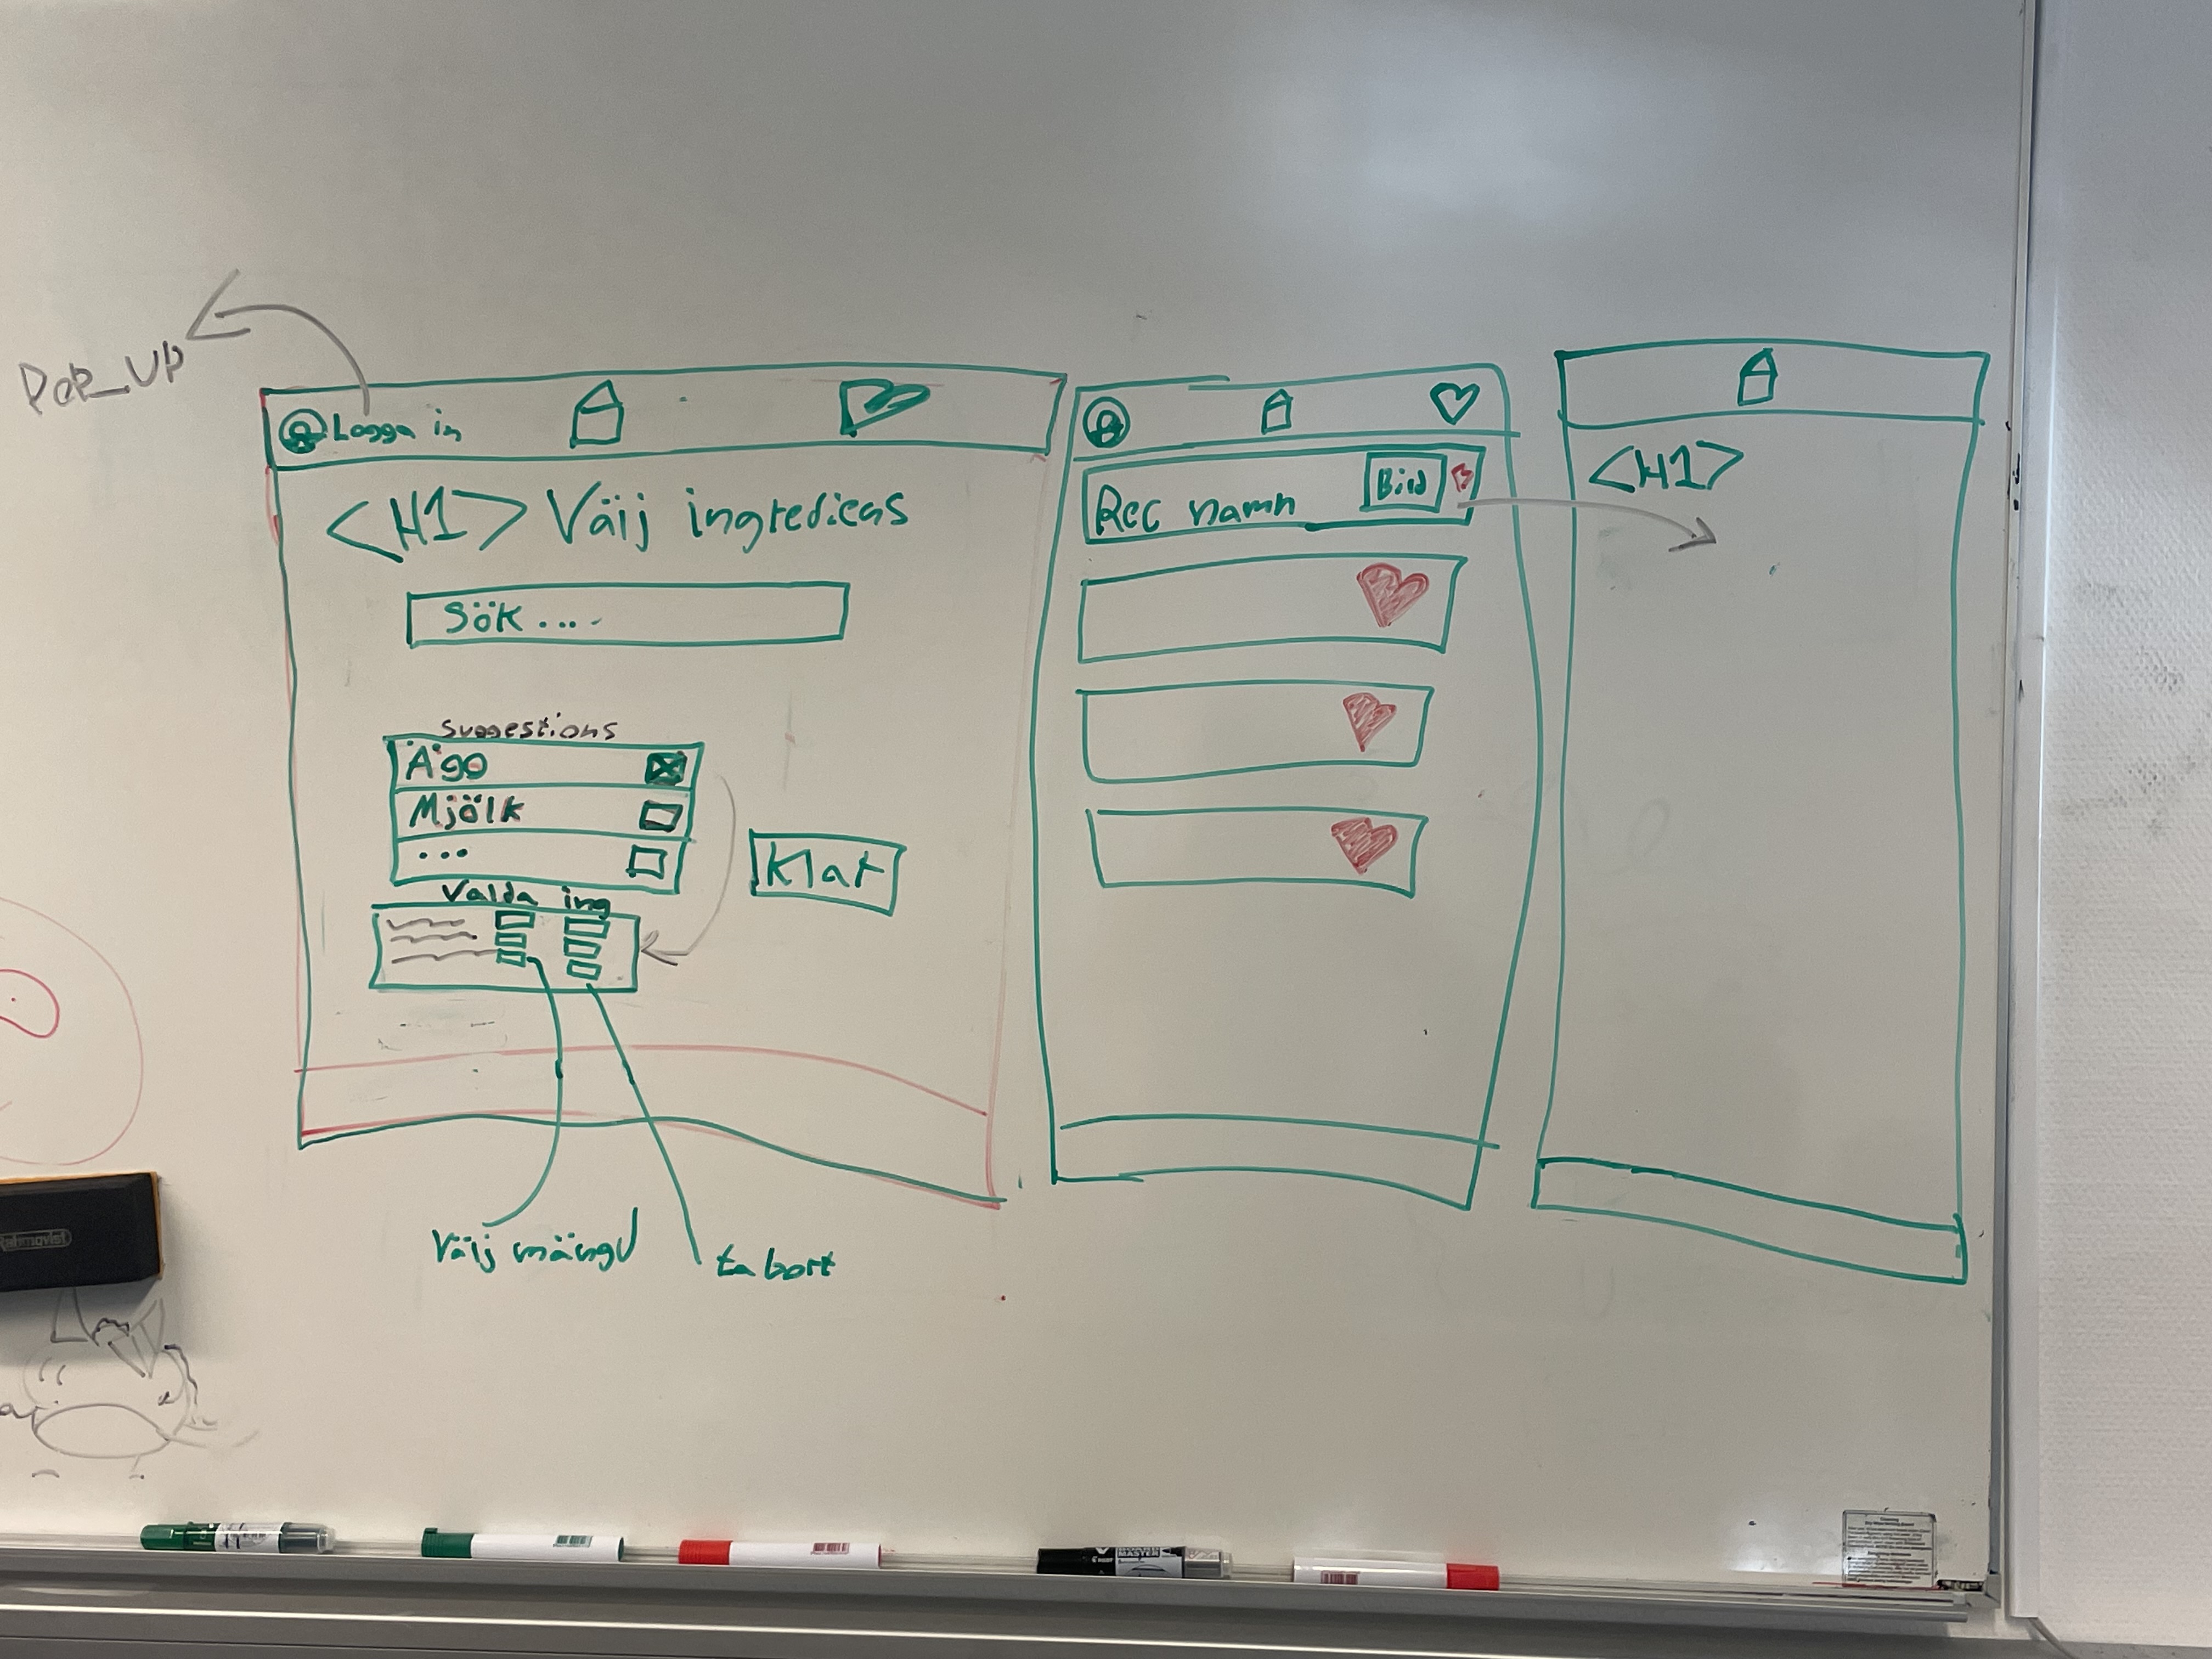 Pop_UP
Logga in
<H1> Välj ingrediens
Sök....
Suggestions
Ägg
Mjölk
...
Valda ing
Klar
Välj mängd
ta bort
Rec namn
Bild
<H1>